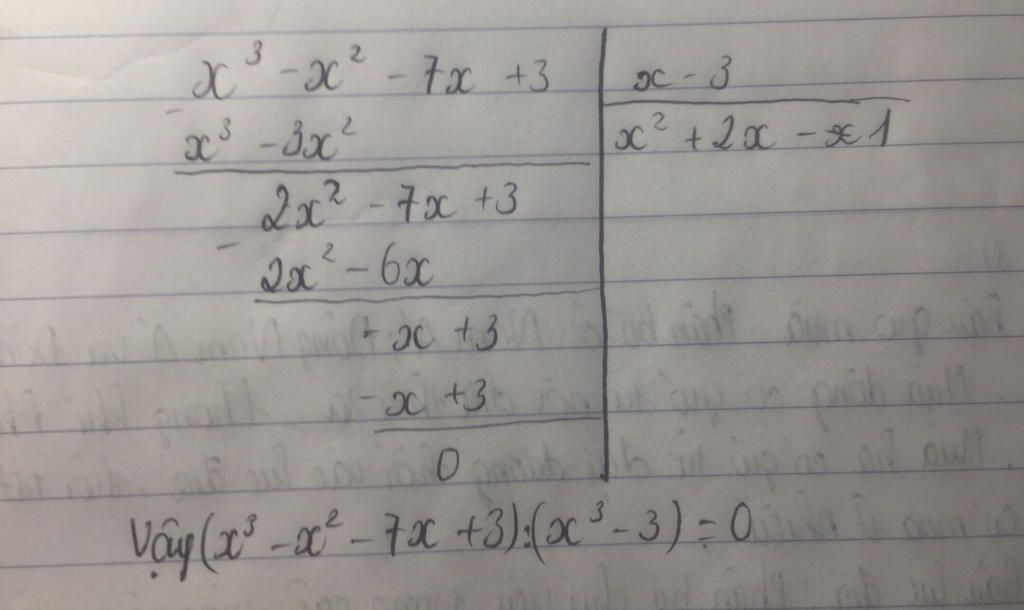 x³ - x² - 7x + 3 | x - 3
-
x³ - 3x² | x² + 2x - 1
2x² - 7x + 3
-
2x² - 6x
- x + 3
- x + 3
0
Vậy (x³ - x² - 7x + 3) : (x³ - 3) = 0